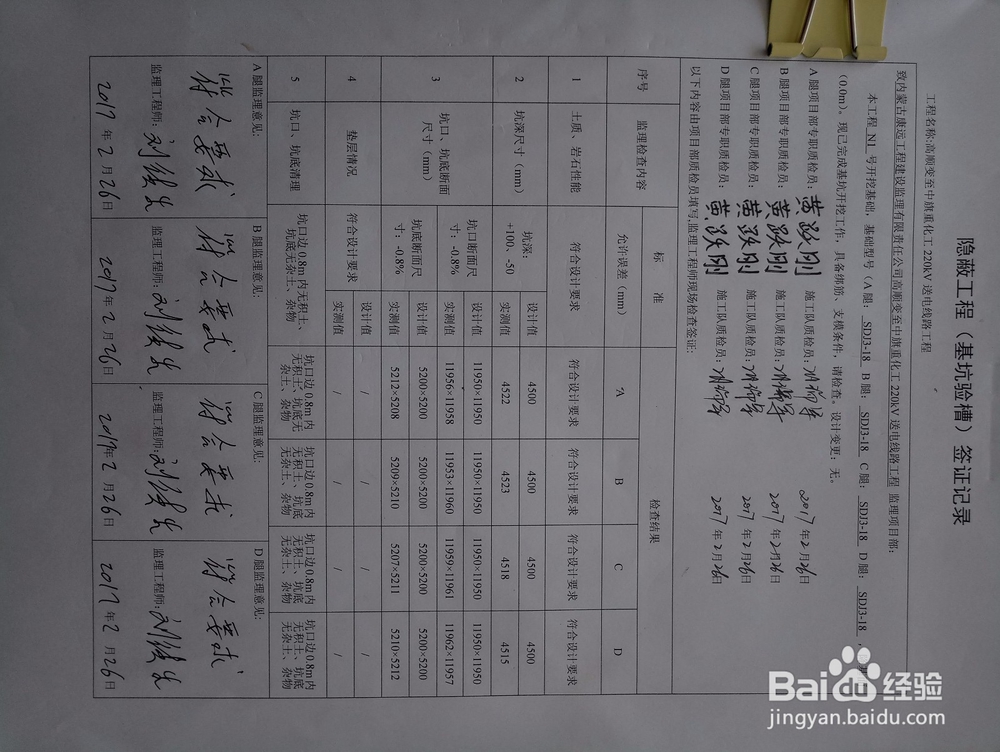 隐蔽工程（基坑验槽）签证记录
工程名称:高顺变至中旗重化工 220kV 送电线路工程
致内蒙古康远工程建设监理有限责任公司高顺变至中旗重化工 220kV 送电线路工程 监理项目部：
本工程 N1 号开挖基础，基础型号（A 腿： SDJ3-18 B 腿： SDJ3-18 C 腿： SDJ3-18 D 腿： SDJ3-18
(0.0m)。现已完成基坑开挖工作，具备绑筋、支模条件，请检查。设计变更：无。
A 腿项目部专职质检员：黄跃刚 施工队质检员： 2017年2月26日
B 腿项目部专职质检员：黄跃刚 施工队质检员： 2017年2月26日
C 腿项目部专职质检员：黄跃刚 施工队质检员： 2017年2月26日
D 腿项目部专职质检员：黄跃刚 施工队质检员： 2017年2月26日
以下内容由项目部质检员填写,监理工程师现场检查签证:
序号 监理检查内容 标 准 检查结果
允许误差（mm） A B C D
1 土质、岩石性能 符合设计要求 符合设计要求 符合设计要求 符合设计要求 符合设计要求
2 坑深尺寸（mm） 坑深：+100、-50 设计值 4500 4500 4500 4500
实测值 4522 4523 4518 4515
3 坑口、坑底断面尺寸（mm） 坑口断面尺寸：-0.8% 设计值 11950×11950 11950×11950 11950×11950 11950×11950
实测值 11956×11958 11953×11960 11959×11961 11962×11957
坑底断面尺寸：-0.8% 设计值 5200×5200 5200×5200 5200×5200 5200×5200
实测值 5212×5208 5209×5210 5207×5211 5210×5212
4 垫层情况 符合设计要求 设计值 / / / /
实测值 / / / /
5 坑口、坑底清理 坑口边 0.8m 内无积土、坑底无杂土、杂物 坑口边 0.8m 内无积土、坑底无杂土、杂物 坑口边 0.8m 内无积土、坑底无杂土、杂物 坑口边 0.8m 内无积土、坑底无杂土、杂物 坑口边 0.8m 内无积土、坑底无杂土、杂物
A 腿监理意见： B 腿监理意见： C 腿监理意见： D 腿监理意见：
符合要求 符合要求 符合要求 符合要求
监理工程师： 监理工程师： 监理工程师： 监理工程师：
2017年2月26日 2017年2月26日 2017年2月26日 2017年2月26日
Baidu经验
jingyan.baidu.com